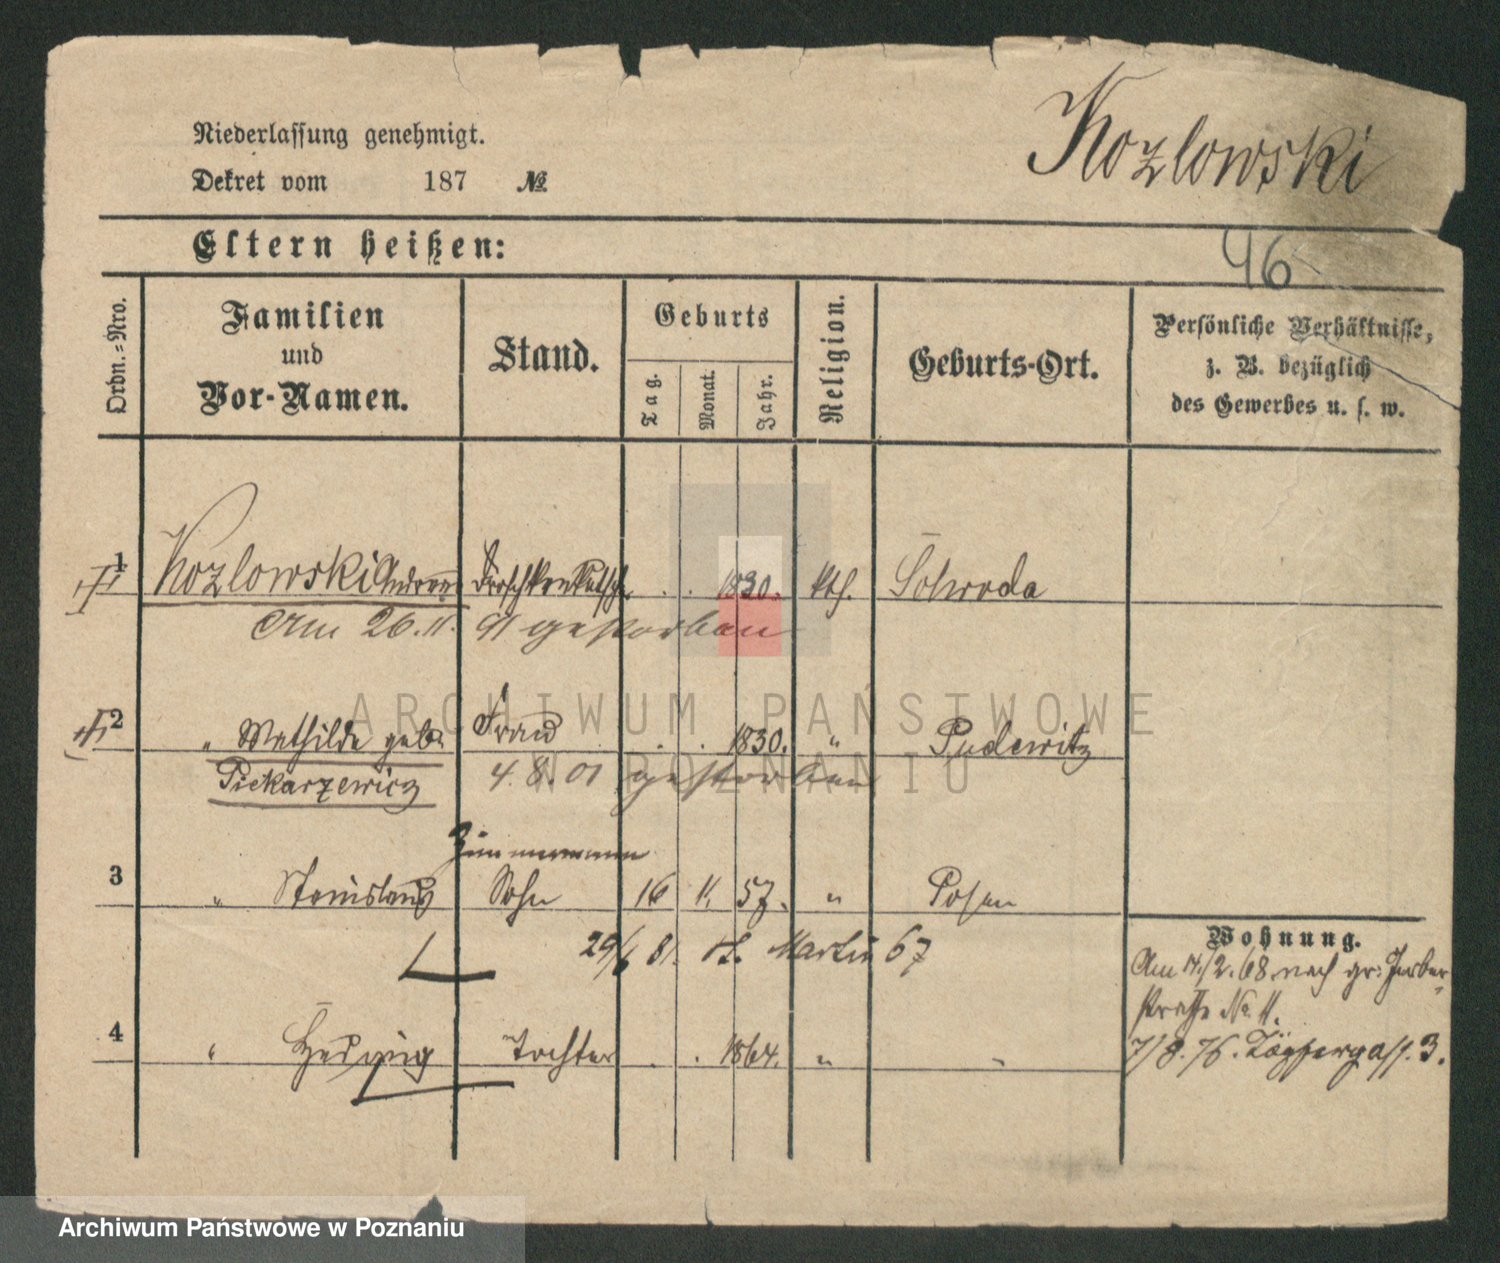 Kozlowski
Niederlassung genehmigt.
Dekret vom 187 №
Eltern heißen:
96
Ordn.-Nro.
Familien
und
Vor-Namen.
Stand.
Geburts
Tag.
Monat.
Jahr.
Religion.
Geburts-Ort.
Persönliche Verhältnisse,
z. B. bezüglich
des Gewerbes u. s. w.
1 Kozlowski Andreas Droschkenkutscher . . 1830. kth. Schroda
Am 26. 11. 91 gestorben
2 " Mathilde geb. Frau . . 1830. " Pudewitz
Piekarzewicz 4. 8. 01 gestorben
Zimmermann
3 " Stanislaus Sohn 16 11. 57. " Posen
29/6 81. St. Martin 67
4 " Hedwig Tochter . . 1864. " "
Wohnung.
Am 11./2. 68 nach gr. Gerber-
straße No. 11.
7/8. 76. 3.
ARCHIWUM PAŃSTWOWE
W POZNANIU
Archiwum Państwowe w Poznaniu